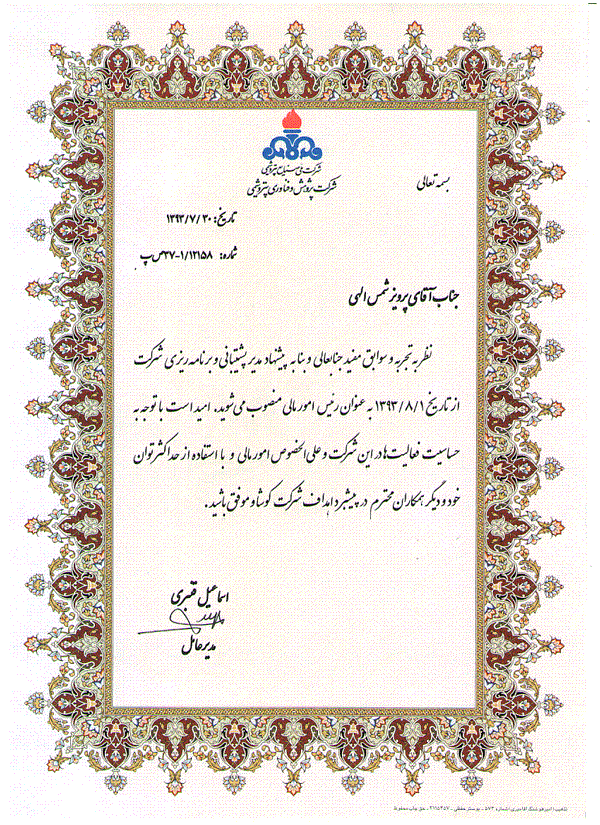 بسمه تعالی
شرکت ملی صنایع پتروشیمی
شرکت پژوهش و فناوری پتروشیمی
تاریخ: ۱۳۹۳/۷/۳۰
شماره: ۱/۱۲۱۵۸-۲۷ص پ
جناب آقای پرویز شمس الهی
نظر به تجربه و سوابق مفید جنابعالی و بنا به پیشنهاد مدیر پشتیبانی و برنامه ریزی شرکت
از تاریخ ۱۳۹۳/۸/۱ به عنوان رئیس امور مالی منصوب می شوید. امید است با توجه به
حساسیت فعالیت‌ها در این شرکت و علی الخصوص امور مالی و با استفاده از حداکثر توان
خود و دیگر همکاران محترم در پیشبرد اهداف شرکت کوشا و موفق باشید.
اسماعیل قنبری
مدیرعامل